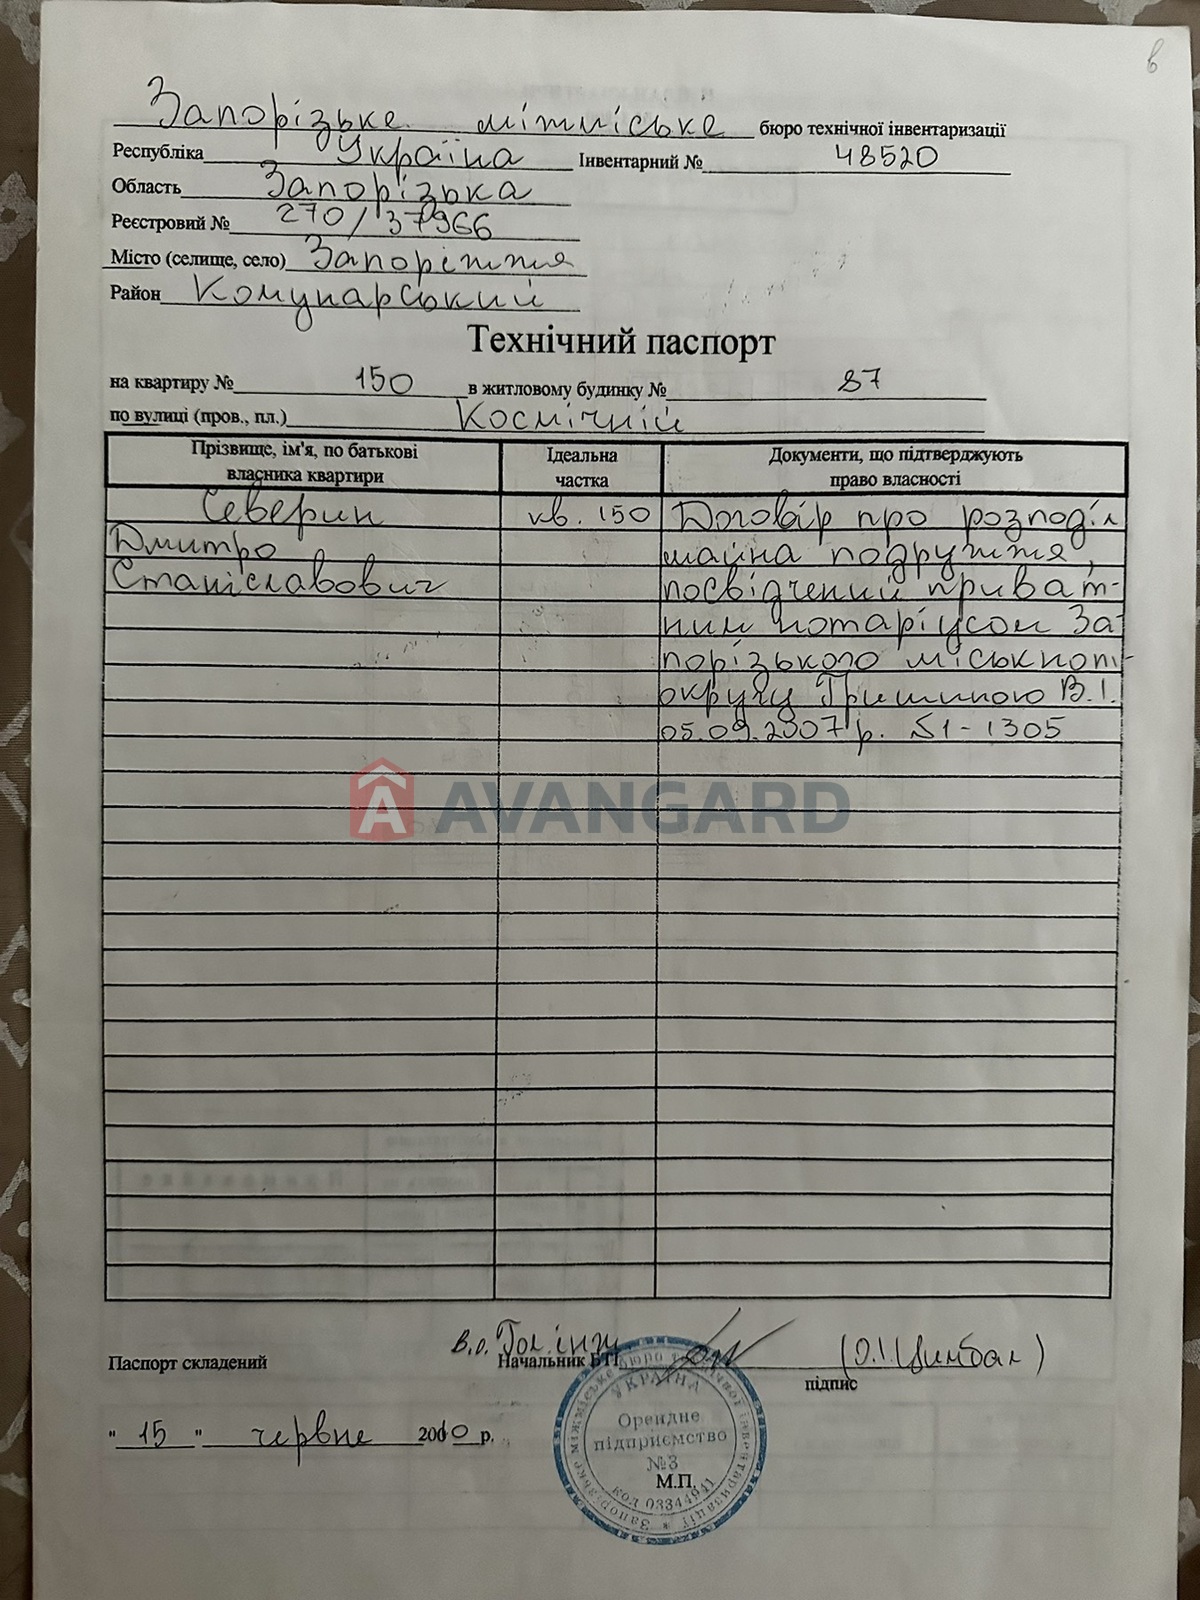 в
Запорізьке міжміське бюро технічної інвентаризації
Республіка Україна Інвентарний № 48520
Область Запорізька
Реєстровий № 270/37966
Місто (селище, село) Запоріжжя
Район Комунарський
Технічний паспорт
на квартиру № 150 в житловому будинку № 87
по вулиці (пров., пл.) Космічній
Прізвище, ім'я, по батькові власника квартири
Ідеальна частка
Документи, що підтверджують право власності
Северин кв. 150 Договір про розподіл
Дмитро майна подружжя,
Станіславович посвідчений приват-
ним нотаріусом За-
порізького міськнот-
округу Гришиною В.І.
05.09.2007 р. S1-1305
AVANGARD
в.о. Гол.інж
Паспорт складений Начальник БТІ (О.І.Цимбал)
підпис
"15" червне 2010 р.
Запорізьке міжміське бюро технічної інвентаризації *
УКРАЇНА
Орендне
підприємство
№3
М.П.
код 03344941